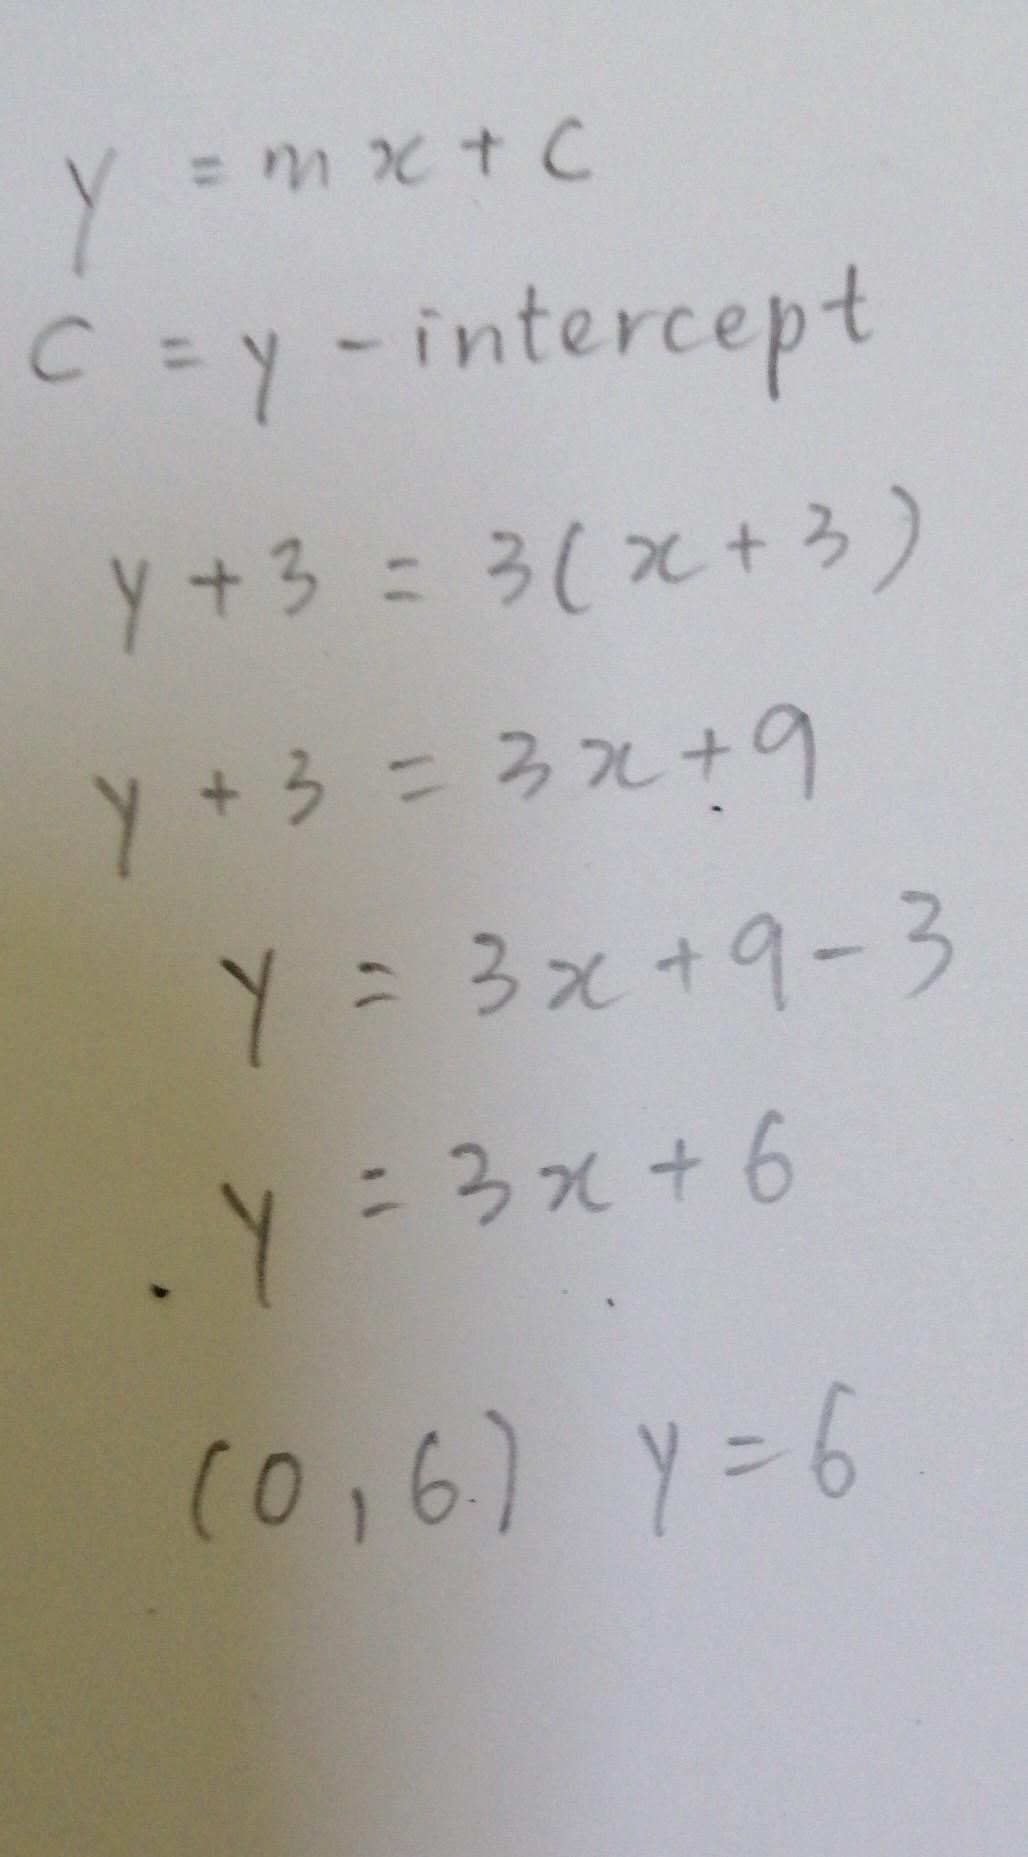 y = mx + c
C = y - intercept
y + 3 = 3(x + 3)
y + 3 = 3x + 9
y = 3x + 9 - 3
y = 3x + 6
(0, 6) y = 6